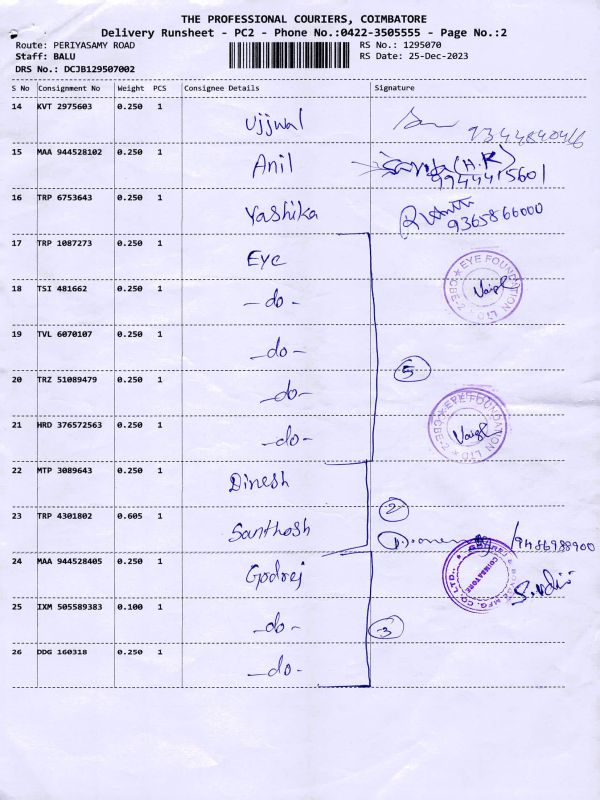 THE PROFESSIONAL COURIERS, COIMBATORE
Delivery Runsheet - PC2 - Phone No.:0422-3505555 - Page No.:2
Route: PERIYASAMY ROAD RS No.: 1295070
Staff: BALU RS Date: 25-Dec-2023
DRS No.: DCJB129507002
S No Consignment No Weight PCS Consignee Details Signature
14 KVT 2975603 0.250 1 Ujjwal
15 MAA 944528102 0.250 1 Anil
9944415601
16 TRP 6753643 0.250 1 Yashika
9365866000
17 TRP 1087273 0.250 1 Eye
EYE FOUNDATION LTD CBE-2
18 TSI 481662 0.250 1 -do-
19 TVL 6070107 0.250 1 -do-
5
20 TRZ 51089479 0.250 1 -do-
21 HRD 376572563 0.250 1 -do-
EYE FOUNDATION LTD CBE-2
22 MTP 3089643 0.250 1 Dinesh
2
23 TRP 4301802 0.605 1 Santhosh
9486988900
24 MAA 944528405 0.250 1 Godrej
COIMBATORE
25 IXM 505589383 0.100 1 -do-
3
26 DDG 160318 0.250 1 -do-